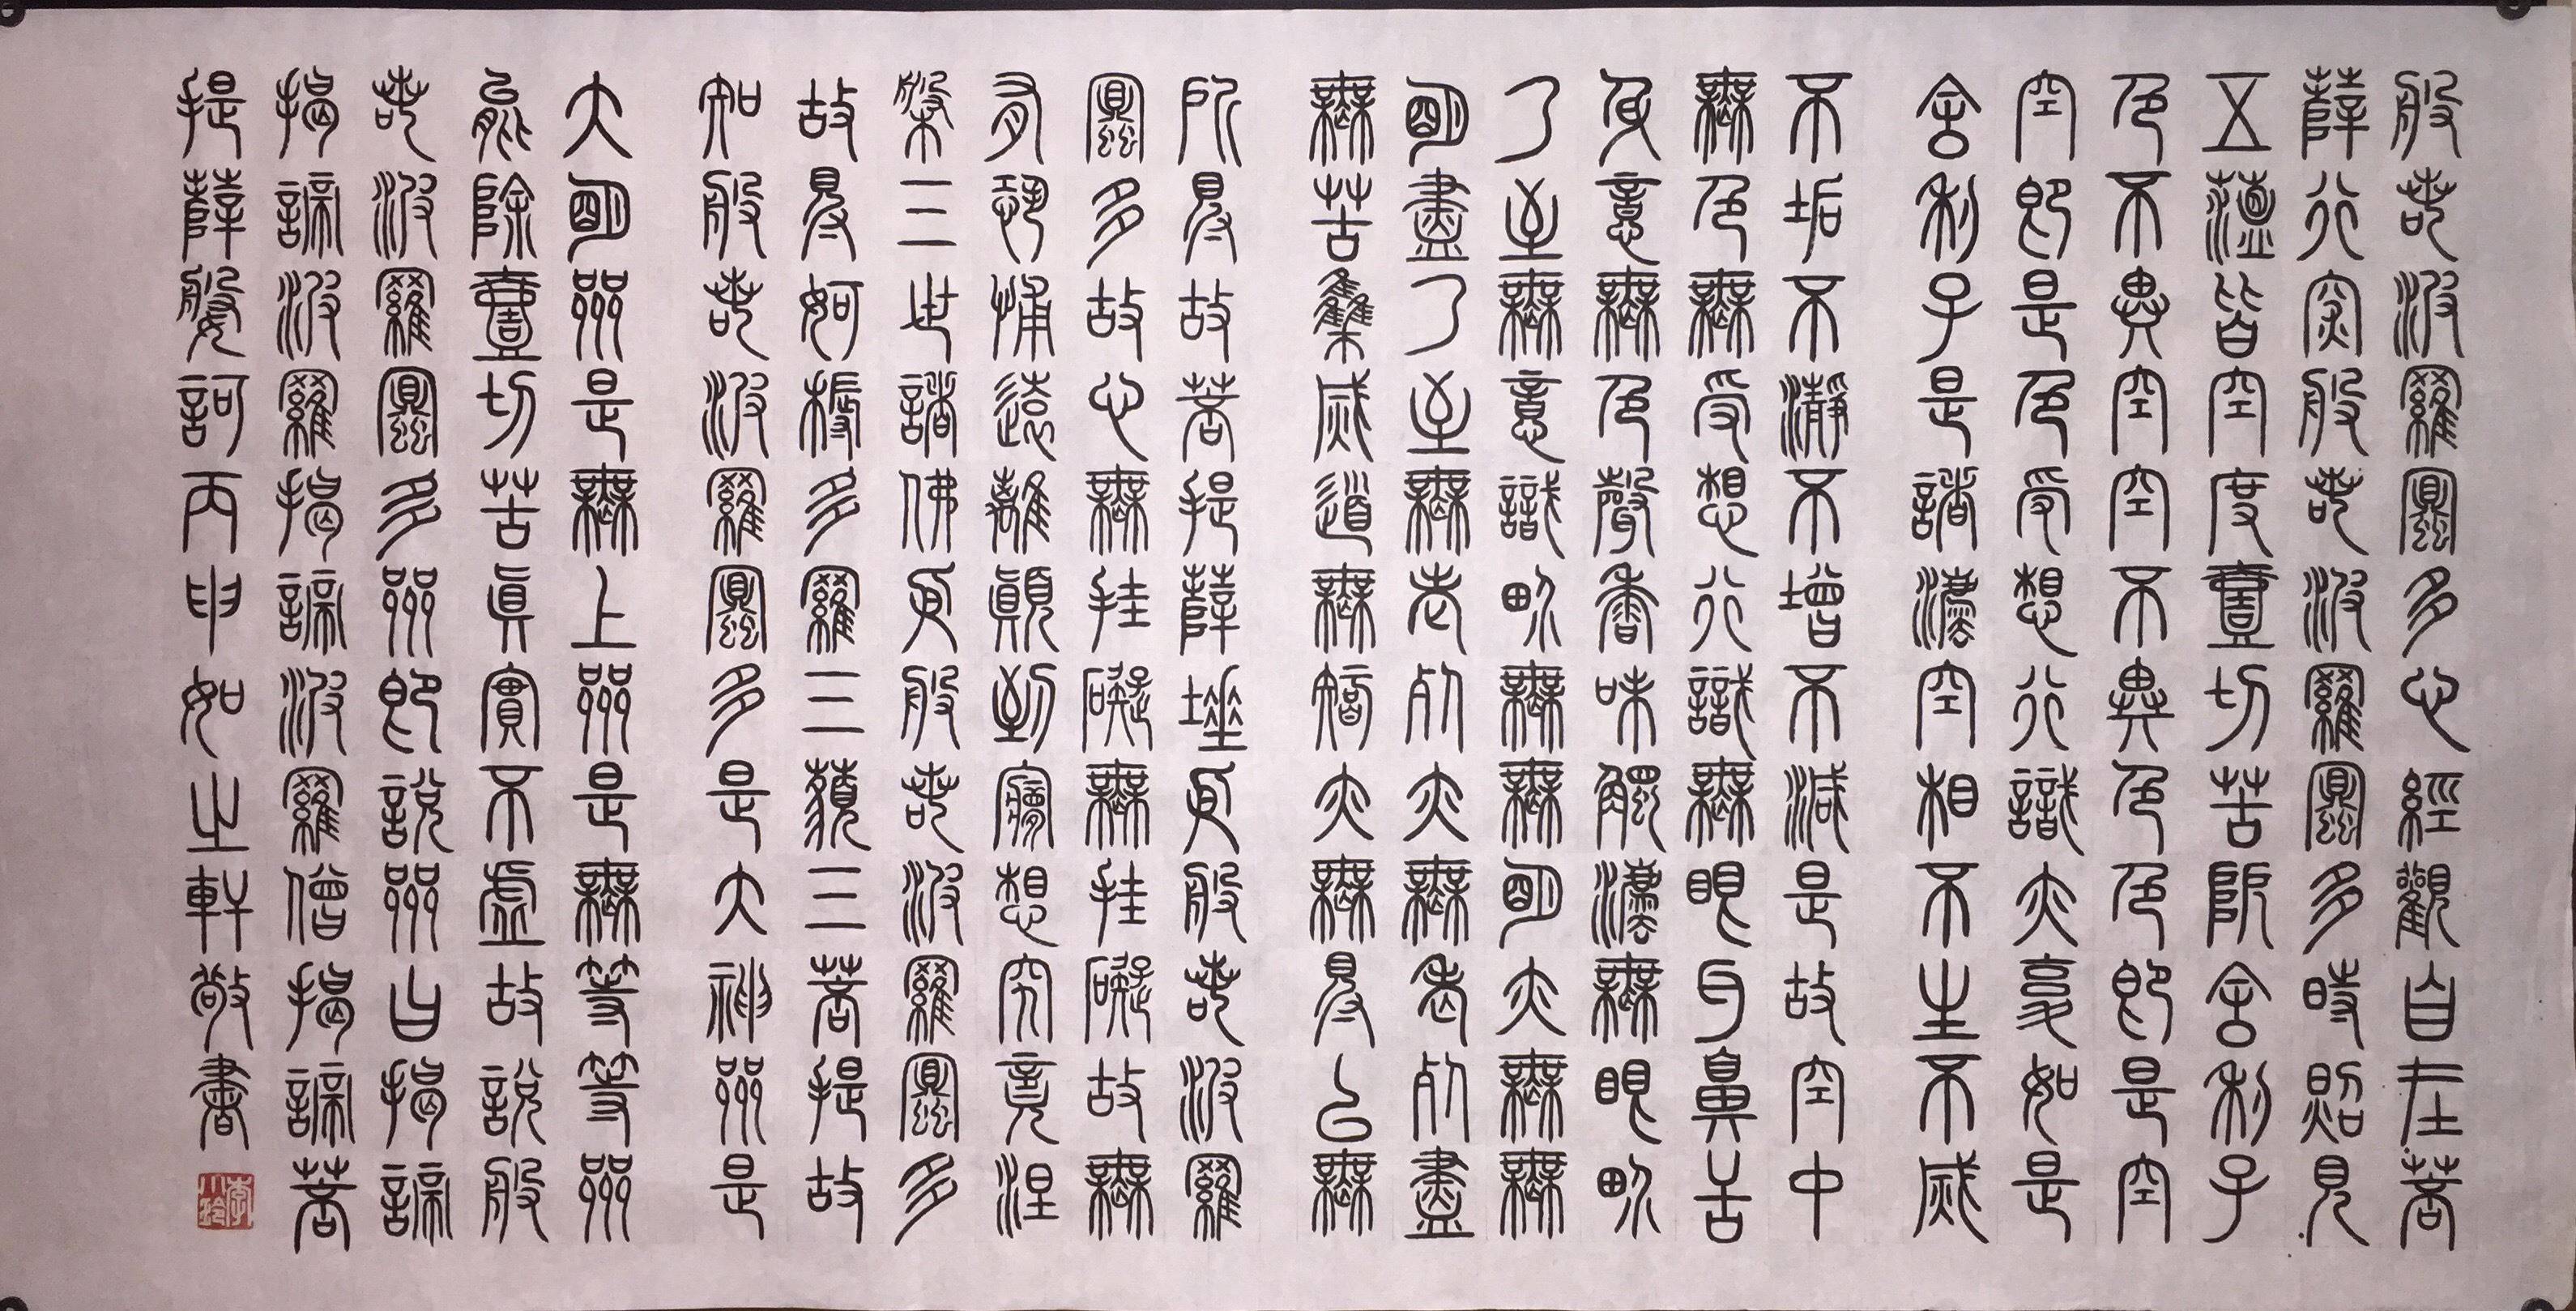 般若波羅蜜多心經觀自在菩
薩行深般若波羅蜜多時照見
五蘊皆空度壹切苦厄舍利子
色不異空空不異色色即是空
空即是色受想行識亦復如是
舍利子是諸法空相不生不滅
不垢不淨不增不減是故空中
無色無受想行識無眼耳鼻舌
身意無色聲香味觸法無眼界
乃至無意識界無無明亦無無
明盡乃至無老死亦無老死盡
無苦集滅道無智亦無得以無
所得故菩提薩埵依般若波羅
蜜多故心無挂礙無挂礙故無
有恐怖遠離顛倒夢想究竟涅
槃三世諸佛依般若波羅蜜多
故得阿耨多羅三藐三菩提故
知般若波羅蜜多是大神咒是
大明咒是無上咒是無等等咒
能除壹切苦真實不虛故說般
若波羅蜜多咒即說咒曰揭諦
揭諦波羅揭諦波羅僧揭諦菩
提薩婆訶丙申如之軒敬書